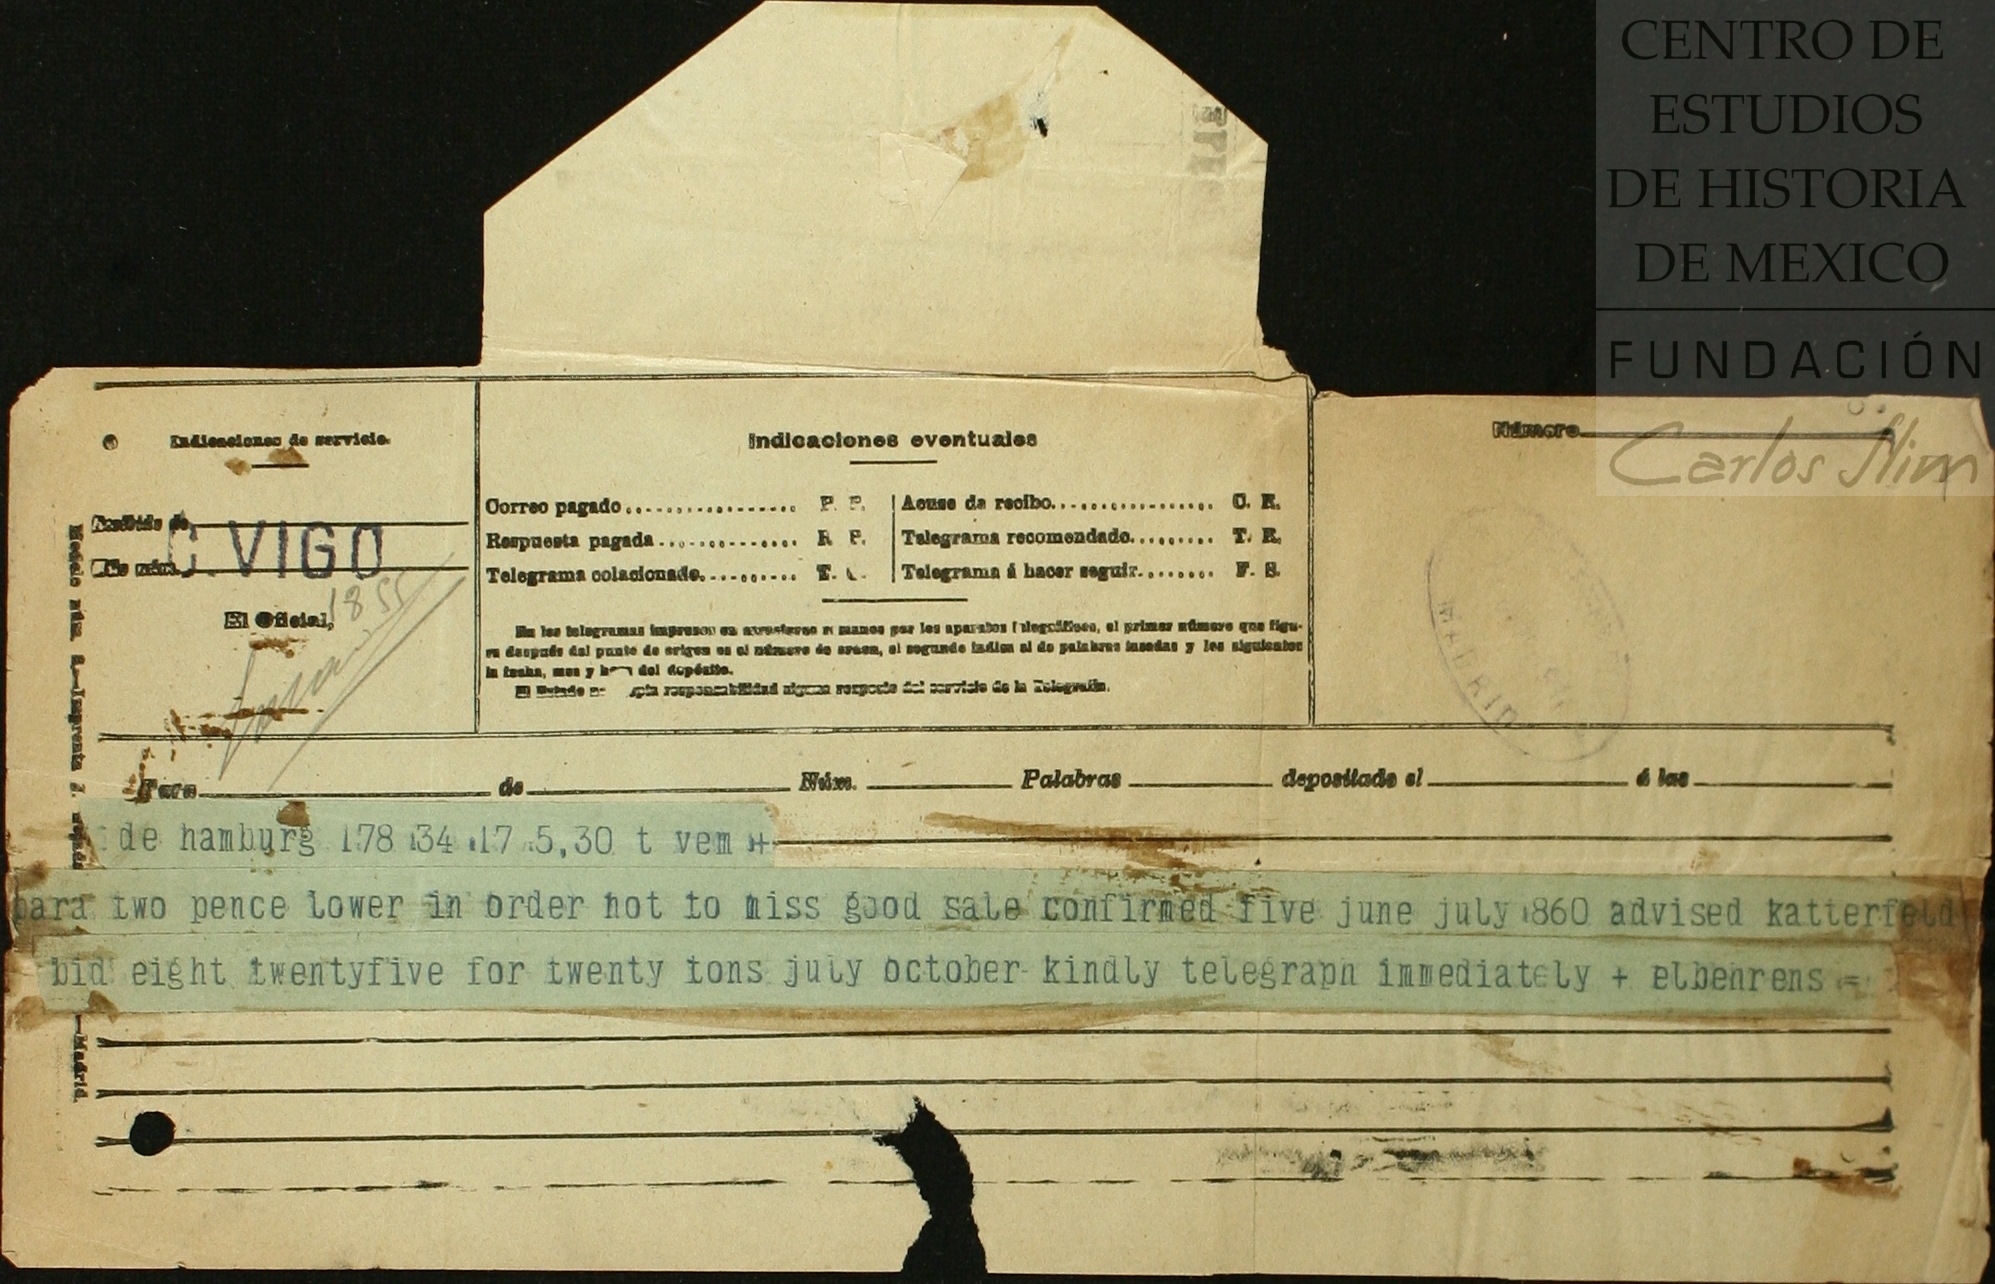 CENTRO DE
ESTUDIOS
DE HISTORIA
DE MEXICO
FUNDACIÓN
Carlos Slim
Indicaciones de servicio.
Recibido de
C. VIGO
El Oficial,
1855
Indicaciones eventuales
Correo pagado ................. P. P.
Respuesta pagada ............... R. P.
Telegrama colacionado. ......... T.
Acuse de recibo. ................ C. R.
Telegrama recomendado. ......... T. R.
Telegrama á hacer seguir. ........ F. S.
En los telegramas impresos en caracteres romanos por los aparatos telegráficos, el primer número que figu-
ra después del punto de origen es el número de orden, el segundo indica el de palabras tasadas y los siguientes
la fecha, mes y hora del depósito.
El Estado no acepta responsabilidad alguna respecto del servicio de la Telegrafía.
Número
MADRID
Para de Núm. Palabras depositado el á las
de hamburg 178 34 17 5,30 t vem +
para two pence lower in order not to miss good sale confirmed five june july 860 advised katterfeld
bid eight twentyfive for twenty tons july october kindly telegraph immediately + elbehrens =
Madrid.